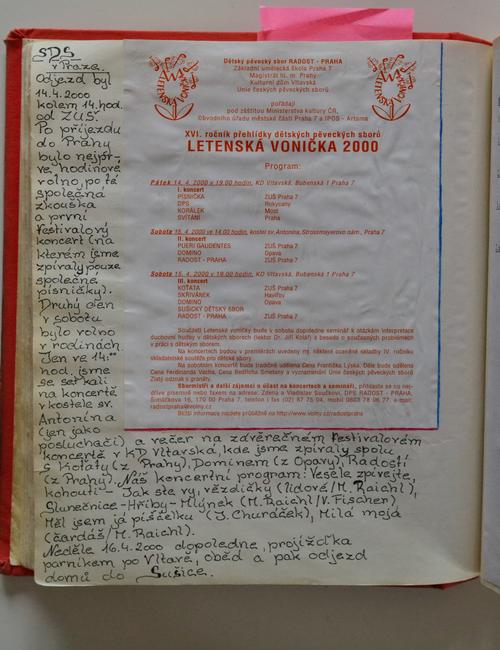 SDS
v Praze.
Odjezd byl
14.4.2000
kolem 14.hod.
od ZUŠ.
Po příjezdu
do Prahy
bylo nejpr-
ve hodinové
volno, po té
společná
zkouška
a první
festivalový
koncert (na
kterém jsme
zpívaly pouze
společné
písničky).
Druhý den
v sobotu
bylo volno
v rodinách.
Jen ve 14:00
hod. jsme
se setkali
na koncertě
v kostele sv.
Antonína
(jen jako
posluchači) a večer na závěrečném festivalovém
koncertě v KD Vltavská, kde jsme zpívaly spolu
s Koťaty (z Prahy), Dominem (z Opavy), Radostí
(z Prahy). Náš koncertní program: Vesele zpívejte,
kohouti - Jak ste vy, vězdičky (lidové/M.Raichl),
Slunečnice-Hřiby-Mlýnek (M.Raichl/V.Fischer)
Měl jsem já píšťelku (J.Churáček), Milá moja
(čardáš/M.Raichl).
Neděle 16.4.2000 dopoledne projížďka
parníkem po Vltavě, oběd a pak odjezd
domů do Sušice.
Dětský pěvecký sbor RADOST - PRAHA
Základní umělecká škola Praha 7
Magistrát hl. m. Prahy
Kulturní dům Vltavská
Unie českých pěveckých sborů
pořádají
pod záštitou Ministerstva kultury ČR,
Obvodního úřadu městské části Praha 7 a IPOS - Artama
XVI. ročník přehlídky dětských pěveckých sborů
LETENSKÁ VONIČKA 2000
Program:
Pátek 14. 4. 2000 v 19.00 hodin, KD Vltavská, Bubenská 1 Praha 7
I. koncert
PÍSNIČKA ZUŠ Praha 7
DPS Rokycany
KORÁLEK Most
SVÍTÁNÍ Praha
Sobota 15. 4. 2000 ve 14.00 hodin, kostel sv. Antonína, Strossmayerovo nám., Praha 7
II. koncert
PUERI GAUDENTES ZUŠ Praha 7
DOMINO Opava
RADOST - PRAHA ZUŠ Praha 7
Sobota 15. 4. 2000 v 19.00 hodin, KD Vltavská, Bubenská 1 Praha 7
III. koncert
KOŤATA ZUŠ Praha 7
SKŘIVÁNEK Havířov
DOMINO Opava
SUŠICKÝ DĚTSKÝ SBOR
RADOST - PRAHA ZUŠ Praha 7
Součástí Letenské voničky bude v sobotu dopoledne seminář k otázkám interpretace
duchovní hudby v dětských sborech (lektor Dr. Jiří Kolář) a beseda o současných problémech
v práci s dětským sborem.
Na koncertech budou v premiérách uvedeny mj. některé oceněné skladby IV. ročníku
skladatelské soutěže pro dětské sbory.
Na sobotním koncertě bude tradičně udělena Cena Františka Lýska. Dále bude udělena
Cena Ferdinanda Vacha, Cena Bedřicha Smetany a vyznamenání Unie českých pěveckých sborů
Zlatý odznak s granáty.
Sbormistři a další zájemci o účast na koncertech a semináři, přihlaste se co nej-
dříve písemně nebo faxem na adrese: Zdena a Vladislav Součkovi, DPS RADOST - PRAHA,
Šimáčkova 16, 170 00 Praha 7, telefon i fax (02) 87 75 04, mobil 0603 78 06 77, e-mail:
radostpraha@volny.cz
Bližší informace najdete průběžně na http://www.volny.cz/radostpraha